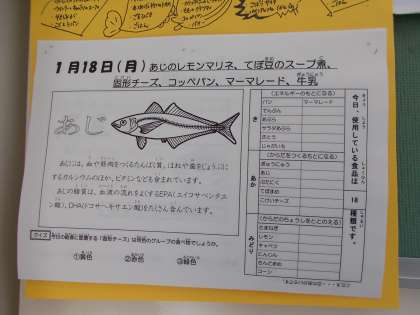 1月18日(月) あじのレモンマリネ、てぼ豆のスープ煮、
固形チーズ、コッペパン、マーマレード、牛乳
あじ
あじには、血や筋肉をつくるたんぱく質、ほねや歯をじょうぶに
するカルシウムのほか、ビタミンなども含まれています。
あじの脂質は、血液の流れをよくするEPA(エイコサペンタエ
ン酸)、DHA(ドコサヘキサエン酸)をたくさん含んでいます。
クイズ
今日の給食に登場する「固形チーズ」は何色のグループの食べ物でしょうか。
①黄色 ②赤色 ③緑色
今日、使用している食品は 18 種類です。
き
(エネルギーのもとになる)
パン マーマレード
でんぷん
あぶら
サラダあぶら
さとう
じゃがいも
あか
(からだをつくるもとになる)
ぎゅうにゅう
あじ
てぼまめ
こけいチーズ
みどり
(からだのちょうしをととのえる)
たまねぎ
レモン
キャベツ
にんじん
コーン